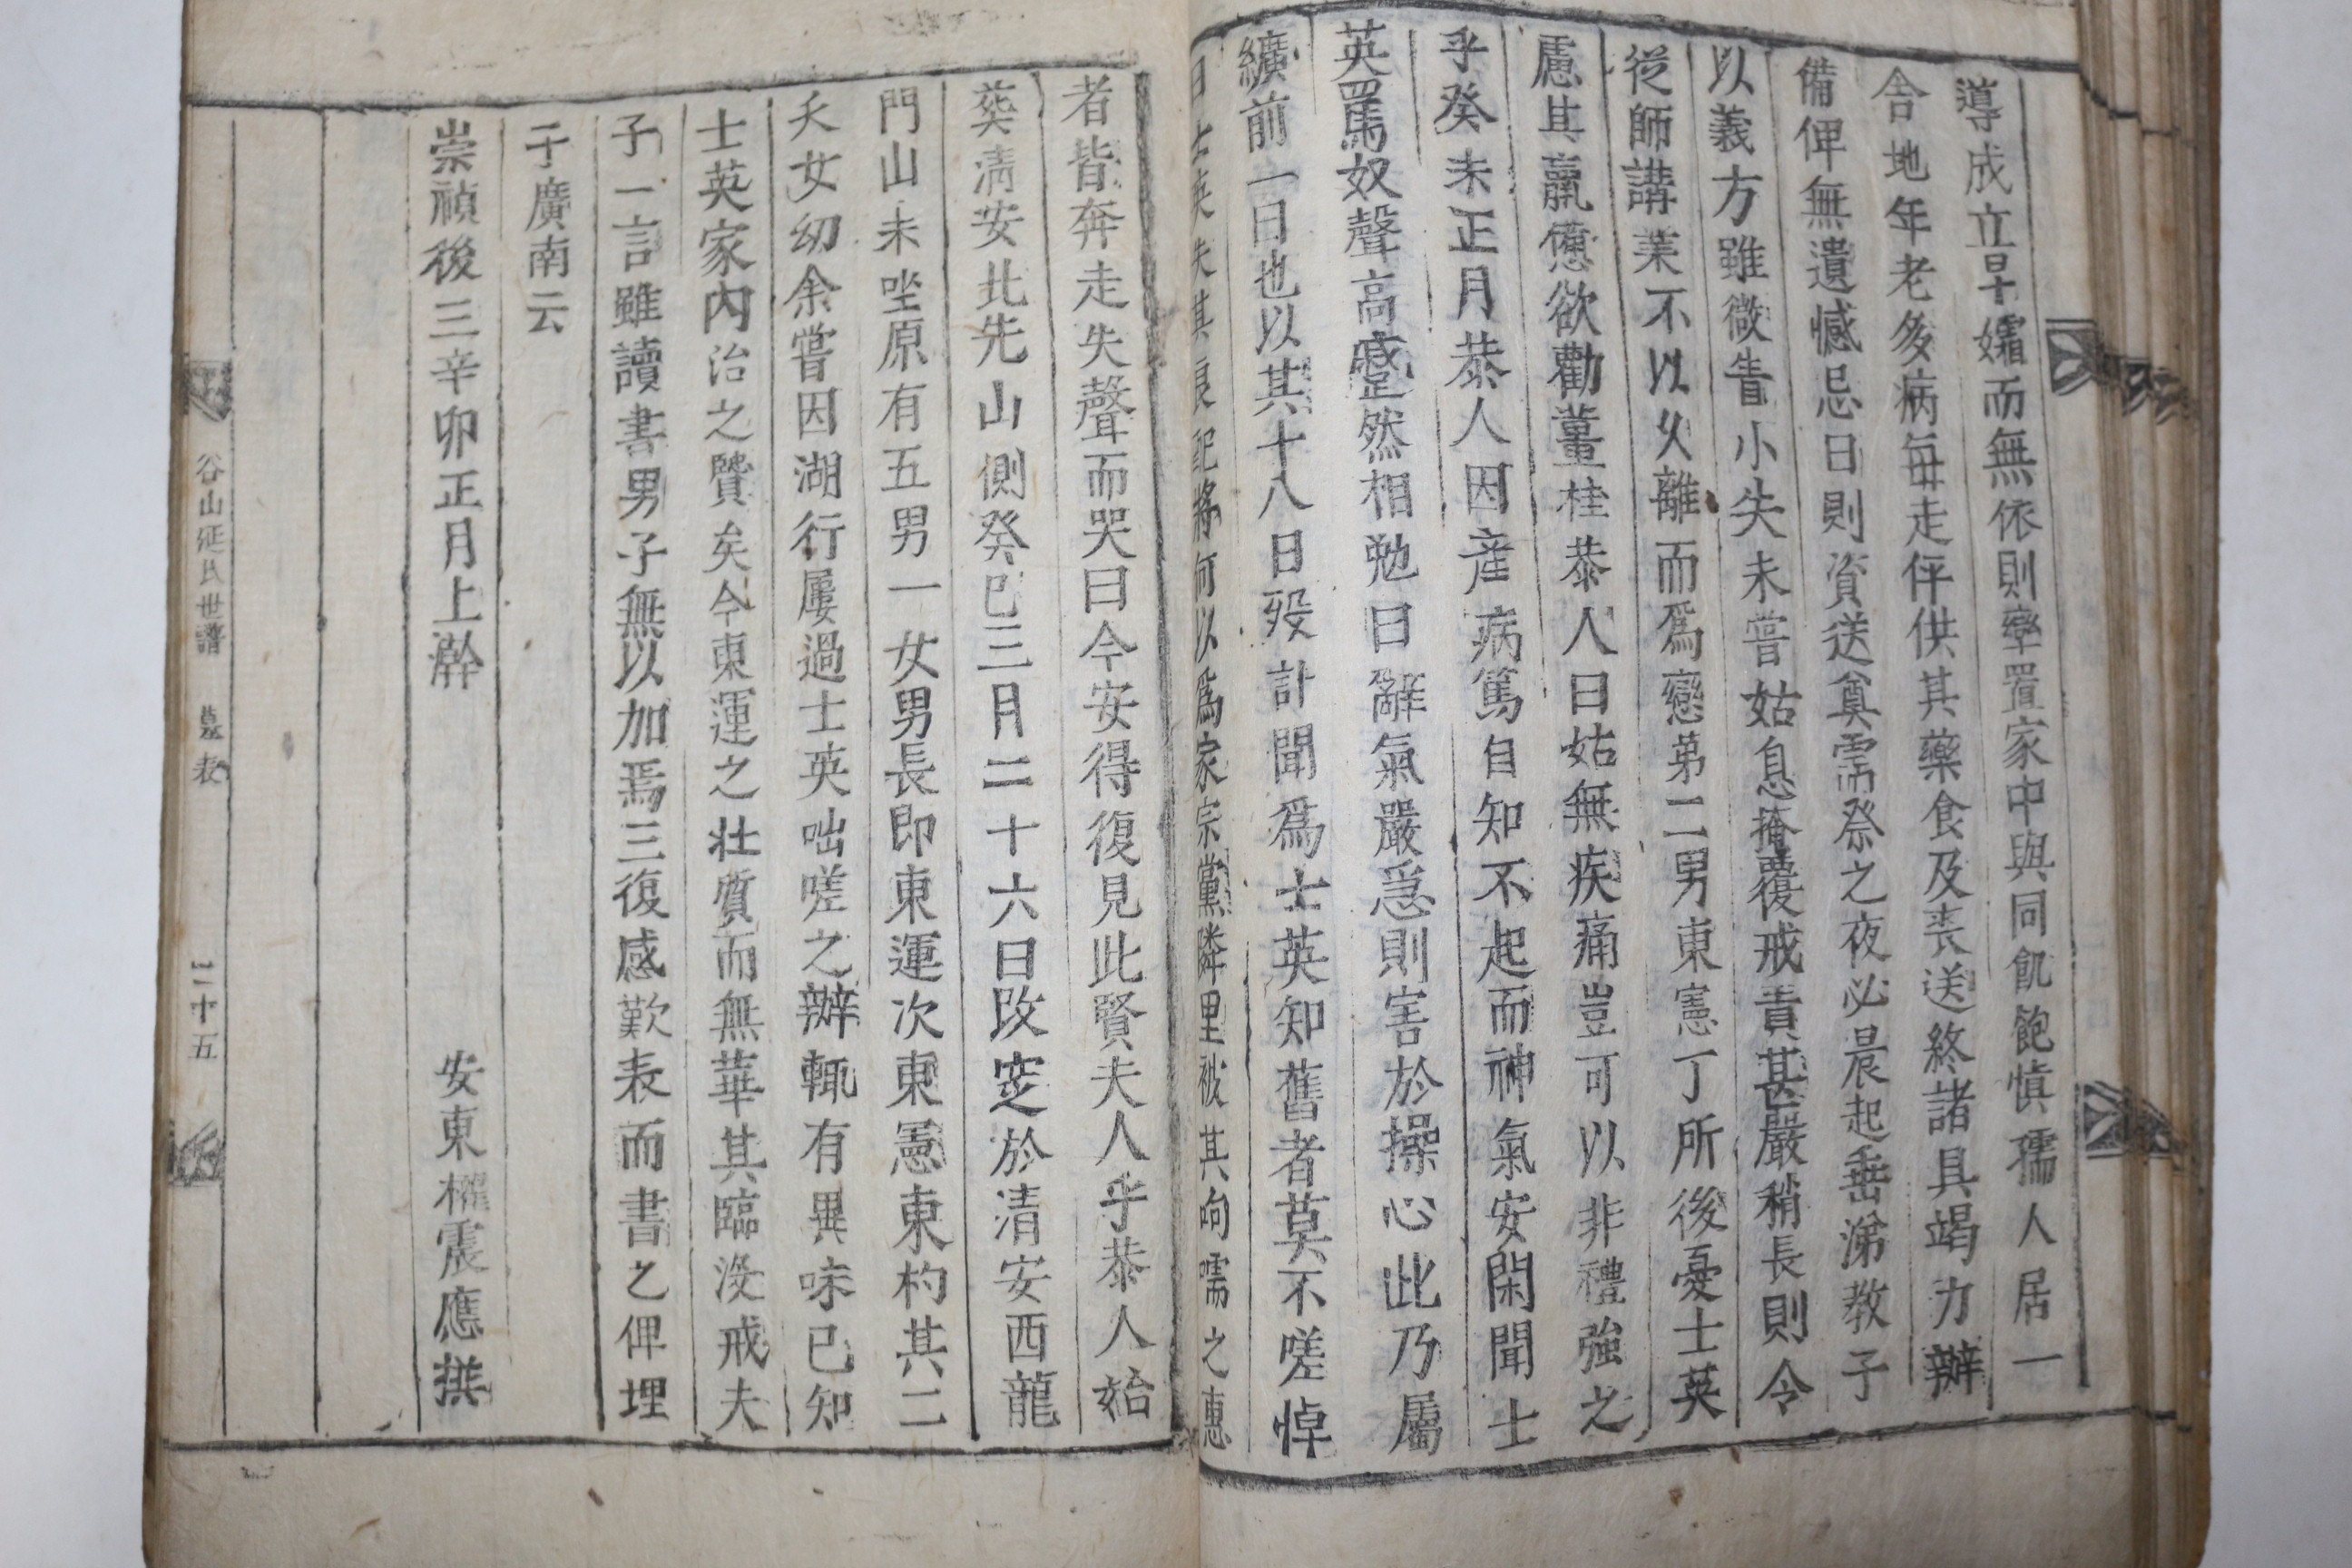 導成立早孀而無依則率置家中與同飢飽愼孺人居一
舍地年老多病每走伻供其藥食及喪送終諸具竭力辦
備俾無遺憾忌日則資送奠需祭之夜必晨起垂涕敎子
以義方雖微眚小失未嘗姑息掩覆戒責甚嚴稍長則令
從師講業不以久離而爲戀第二男東憲丁所後憂士英
慮其羸憊欲勸薑桂恭人曰姑無疾痛豈可以非禮強之
乎癸未正月恭人因産病篤自知不起而神氣安閑聞士
英罵奴聲高蹙然相勉曰辭氣嚴急則害於操心此乃屬
纊前一日也以其十八日歿訃聞爲士英知舊者莫不嗟悼
曰士英失其良配將何以爲家宗黨隣里被其呴嚅之惠
者皆奔走失聲而哭曰今安得復見此賢夫人乎恭人始
葬淸安北先山側癸巳三月二十六日改窆於清安西龍
門山未坐原有五男一女男長即東運次東憲東杓其二
夭女幼余嘗因湖行屢過士英咄嗟之辦輒有異味已知
士英家內治之贒矣今東運之壯質而無華其臨沒戒夫
子一言雖讀書男子無以加焉三復感歎表而書之俾埋
于廣南云
崇禎後三辛卯正月上澣 安東權震應撰
谷山延氏世譜 墓表 二十五